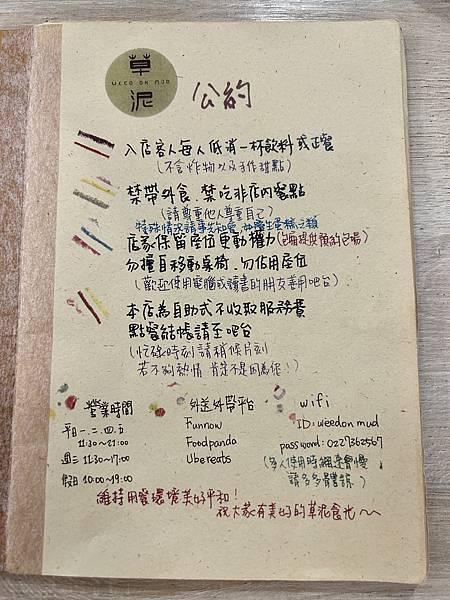 草
WEED ON MUD
泥
公約
入店客人每人低消一杯飲料或正餐
(不含炸物以及手作甜點)
禁帶外食、禁吃非店內餐點
(請尊重他人尊重自己)
特殊情況請事先知會,如慶生蛋糕之類
店家保留座位更動權力(包場提供預約包場)
勿擅自移動桌椅、勿佔用座位
(歡迎使用電腦或讀書的朋友善用吧台)
本店為自助式不收取服務費
點餐結帳請至吧台
(忙碌時刻請稍候片刻
若不夠熱情 肯定不是因為您!)
營業時間
平日一.二.四.五
11:30~21:00
週三 11:30~17:00
假日 10:00~19:00
外送外帶平台
Funnow
Foodpanda
Ubereats
wifi
ID: weedon mud
password: 0227362567
(多人使用時網速會慢
請多多見諒)
維持用餐環境美好平和!
祝大家有美好的草泥食光~~